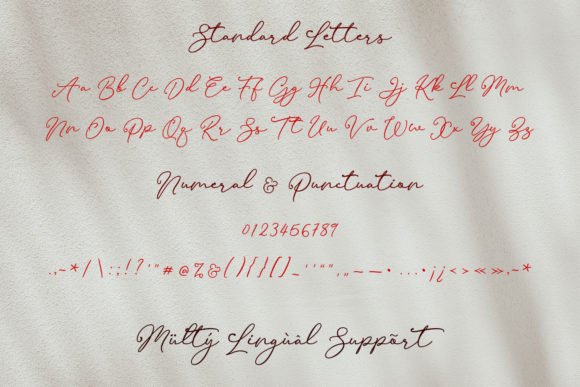 Standard Letters
Aa Bb Cc Dd Ee Ff Gg Hh Ii Jj Kk Ll Mm
Nn Oo Pp Qq Rr Ss Tt Uu Vv Ww Xx Yy Zz
Numeral & Punctuation
0123456789
.,~*/|\:;!?'"#@%&(){}[]_‘’“”‚„–—•...·¡¿<>«»,~*
Mültý Lingùâl Suppõrt